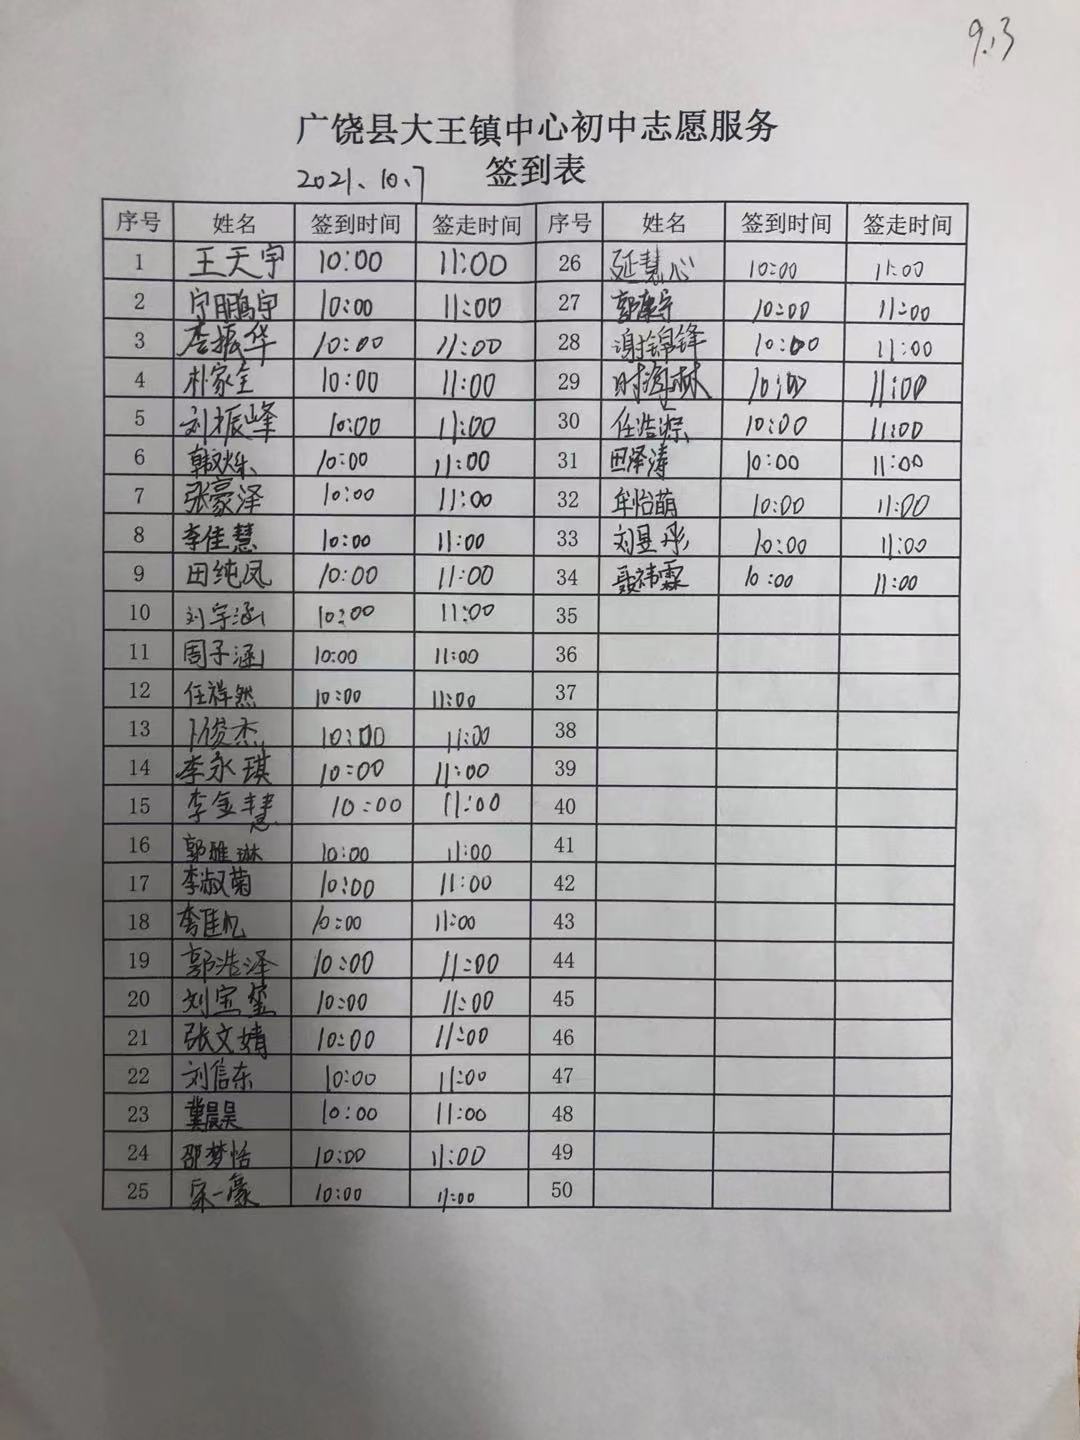 9.13
广饶县大王镇中心初中志愿服务
2021.10.7 签到表
序号 姓名 签到时间 签走时间 序号 姓名 签到时间 签走时间
1 王天宇 10:00 11:00 26 延慧心 10:00 11:00
2 宁鹏宇 10:00 11:00 27 郭康宁 10:00 11:00
3 李振华 10:00 11:00 28 谢锦锋 10:00 11:00
4 朴家全 10:00 11:00 29 时海林 10:00 11:00
5 刘振峰 10:00 11:00 30 任浩淙 10:00 11:00
6 10:00 11:00 31 田泽涛 10:00 11:00
7 张豪泽 10:00 11:00 32 牟怡萌 10:00 11:00
8 李佳慧 10:00 11:00 33 刘昱彤 10:00 11:00
9 田纯凤 10:00 11:00 34 聂祎霖 10:00 11:00
10 刘宇涵 10:00 11:00 35
11 周子涵 10:00 11:00 36
12 任祥然 10:00 11:00 37
13 卜俊杰 10:00 11:00 38
14 李永琪 10:00 11:00 39
15 李金慧 10:00 11:00 40
16 郭雅琳 10:00 11:00 41
17 李淑菊 10:00 11:00 42
18 李佳忆 10:00 11:00 43
19 郭浩泽 10:00 11:00 44
20 刘宝玺 10:00 11:00 45
21 张文婧 10:00 11:00 46
22 刘信东 10:00 11:00 47
23 冀晨昊 10:00 11:00 48
24 邵梦恬 10:00 11:00 49
25 宋一豪 10:00 11:00 50